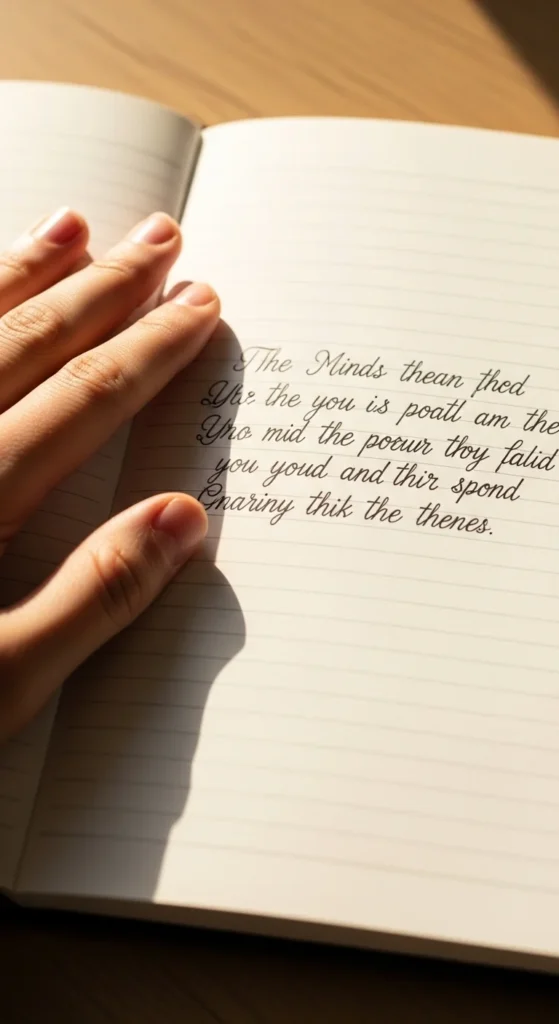 The Minds thean thed
the you is poatl am the
Yno mid the pocuur thoy falid
you youd and thir spond
Gnariny thik the thenes.